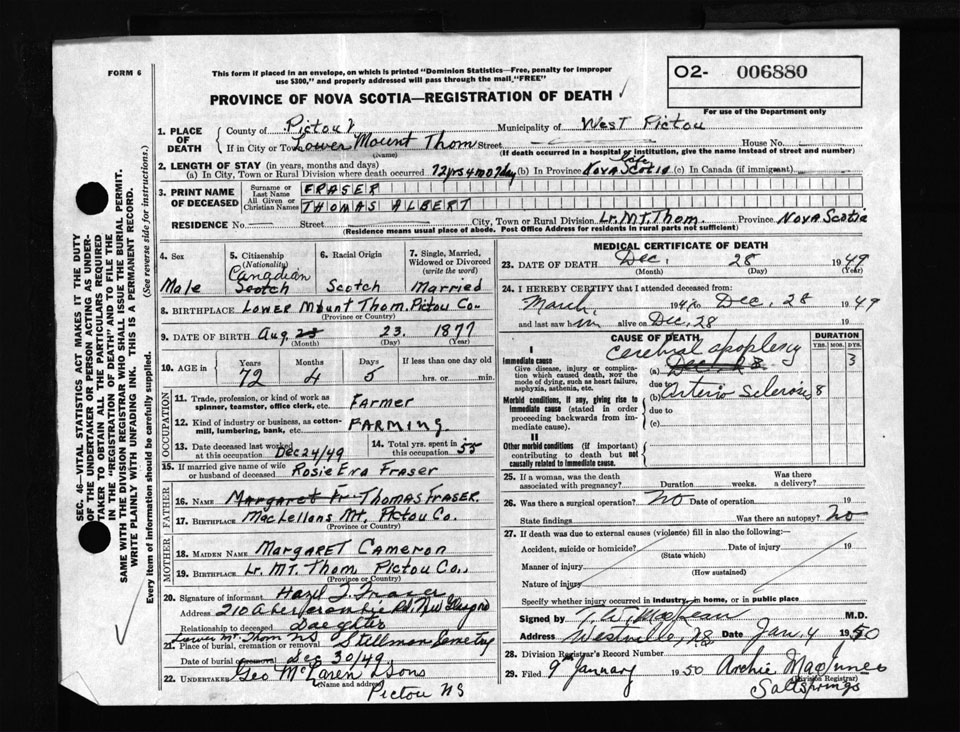 FORM 6
This form if placed in an envelope, on which is printed "Dominion Statistics—Free, penalty for improper
use $300," and properly addressed will pass through the mail "FREE"
O2- 006880
For use of the Department only
PROVINCE OF NOVA SCOTIA—REGISTRATION OF DEATH
1. PLACE OF DEATH
County of Pictou Municipality of West Pictou
If in City or Town Lower Mount Thom Street House No.
(Name) (If death occurred in a hospital or institution, give the name instead of street and number)
2. LENGTH OF STAY (in years, months and days)
(a) In City, Town or Rural Division where death occurred 72 yrs 4 mo (b) In Province life Nova Scotia (c) In Canada (if immigrant)
3. PRINT NAME OF DECEASED
Surname or Last Name FRASER
All Given or Christian Names THOMAS ALBERT
RESIDENCE No. Street City, Town or Rural Division Lr. Mt. Thom. Province Nova Scotia
(Residence means usual place of abode. Post Office Address for residents in rural parts not sufficient)
4. Sex
Male
5. Citizenship (Nationality)
Canadian
Scotch
6. Racial Origin
Scotch
7. Single, Married, Widowed or Divorced (write the word)
Married
8. BIRTHPLACE Lower Mount Thom. Pictou Co.
(Province or Country)
9. DATE OF BIRTH Aug. 23 23. 1877
(Month) (Day) (Year)
10. AGE in
Years Months Days If less than one day old
72 4 5 hrs. or min.
OCCUPATION
11. Trade, profession, or kind of work as spinner, teamster, office clerk, etc. Farmer
12. Kind of industry or business, as cotton-mill, lumbering, bank, etc. FARMING.
13. Date deceased last worked at this occupation Dec 24/49
14. Total yrs. spent in this occupation 55
15. If married give name of wife or husband of deceased Rosie Fraser
FATHER
16. NAME Margaret Fr Thomas Fraser
17. BIRTHPLACE MacLellans Mt. Pictou Co.
(Province or Country)
MOTHER
18. MAIDEN NAME Margaret Cameron
19. BIRTHPLACE Lr. Mt. Thom Pictou Co.,
(Province or Country)
20. Signature of informant Hazel J. Fraser
Address 210 Abercrombie Rd. New Glasgow
Relationship to deceased Daughter
Lower Mt. Thom NS
21. Place of burial, cremation or removal Stillman Cemetry
Date of burial cremation Dec 30/49
22. UNDERTAKER Geo McLaren & Sons
(Name and address) Pictou NS
MEDICAL CERTIFICATE OF DEATH
23. DATE OF DEATH Dec. 28 1949
(Month) (Day) (Year)
24. I HEREBY CERTIFY that I attended deceased from:
March, 194 to Dec, 28 1949
and last saw him alive on Dec, 28 19
CAUSE OF DEATH DURATION
YRS. MOS. DYS.
I
Immediate cause
Give disease, injury or complication which caused death, NOT the mode of dying, such as heart failure, asphyxia, asthenia, etc.
Cerebral apoplexy 3
(a)
due to
Morbid conditions, if any, giving rise to immediate cause (stated in order proceeding backwards from immediate cause).
(b) Arterio Sclerosis 8
due to
(c)
II
Other morbid conditions (if important) contributing to death but not causally related to immediate cause.
25. If a woman, was the death associated with pregnancy? Duration weeks. Was there a delivery?
26. Was there a surgical operation? No Date of operation 19
State findings Was there an autopsy? No
27. If death was due to external causes (violence) fill in also the following:
Accident, suicide or homicide? Date of injury 19
(State which)
Manner of injury
(How sustained)
Nature of injury
Specify whether injury occurred in industry, in home, or in public place
Signed by M.D.
Address Westville, NS Date Jan. 4 1950
28. Division Registrar's Record Number
29. Filed 9th January 1950 Archie MacInnes
(Division Registrar)
Saltsprings
SEC. 46—VITAL STATISTICS ACT MAKES IT THE DUTY
OF THE UNDERTAKER OR PERSON ACTING AS UNDER-
TAKER TO OBTAIN ALL THE PARTICULARS REQUIRED
IN THE "REGISTRATION OF DEATH" AND TO FILE THE
SAME WITH THE DIVISION REGISTRAR WHO SHALL ISSUE THE BURIAL PERMIT.
WRITE PLAINLY WITH UNFADING INK. THIS IS A PERMANENT RECORD.
Every item of information should be carefully supplied. (See reverse side for instructions.)